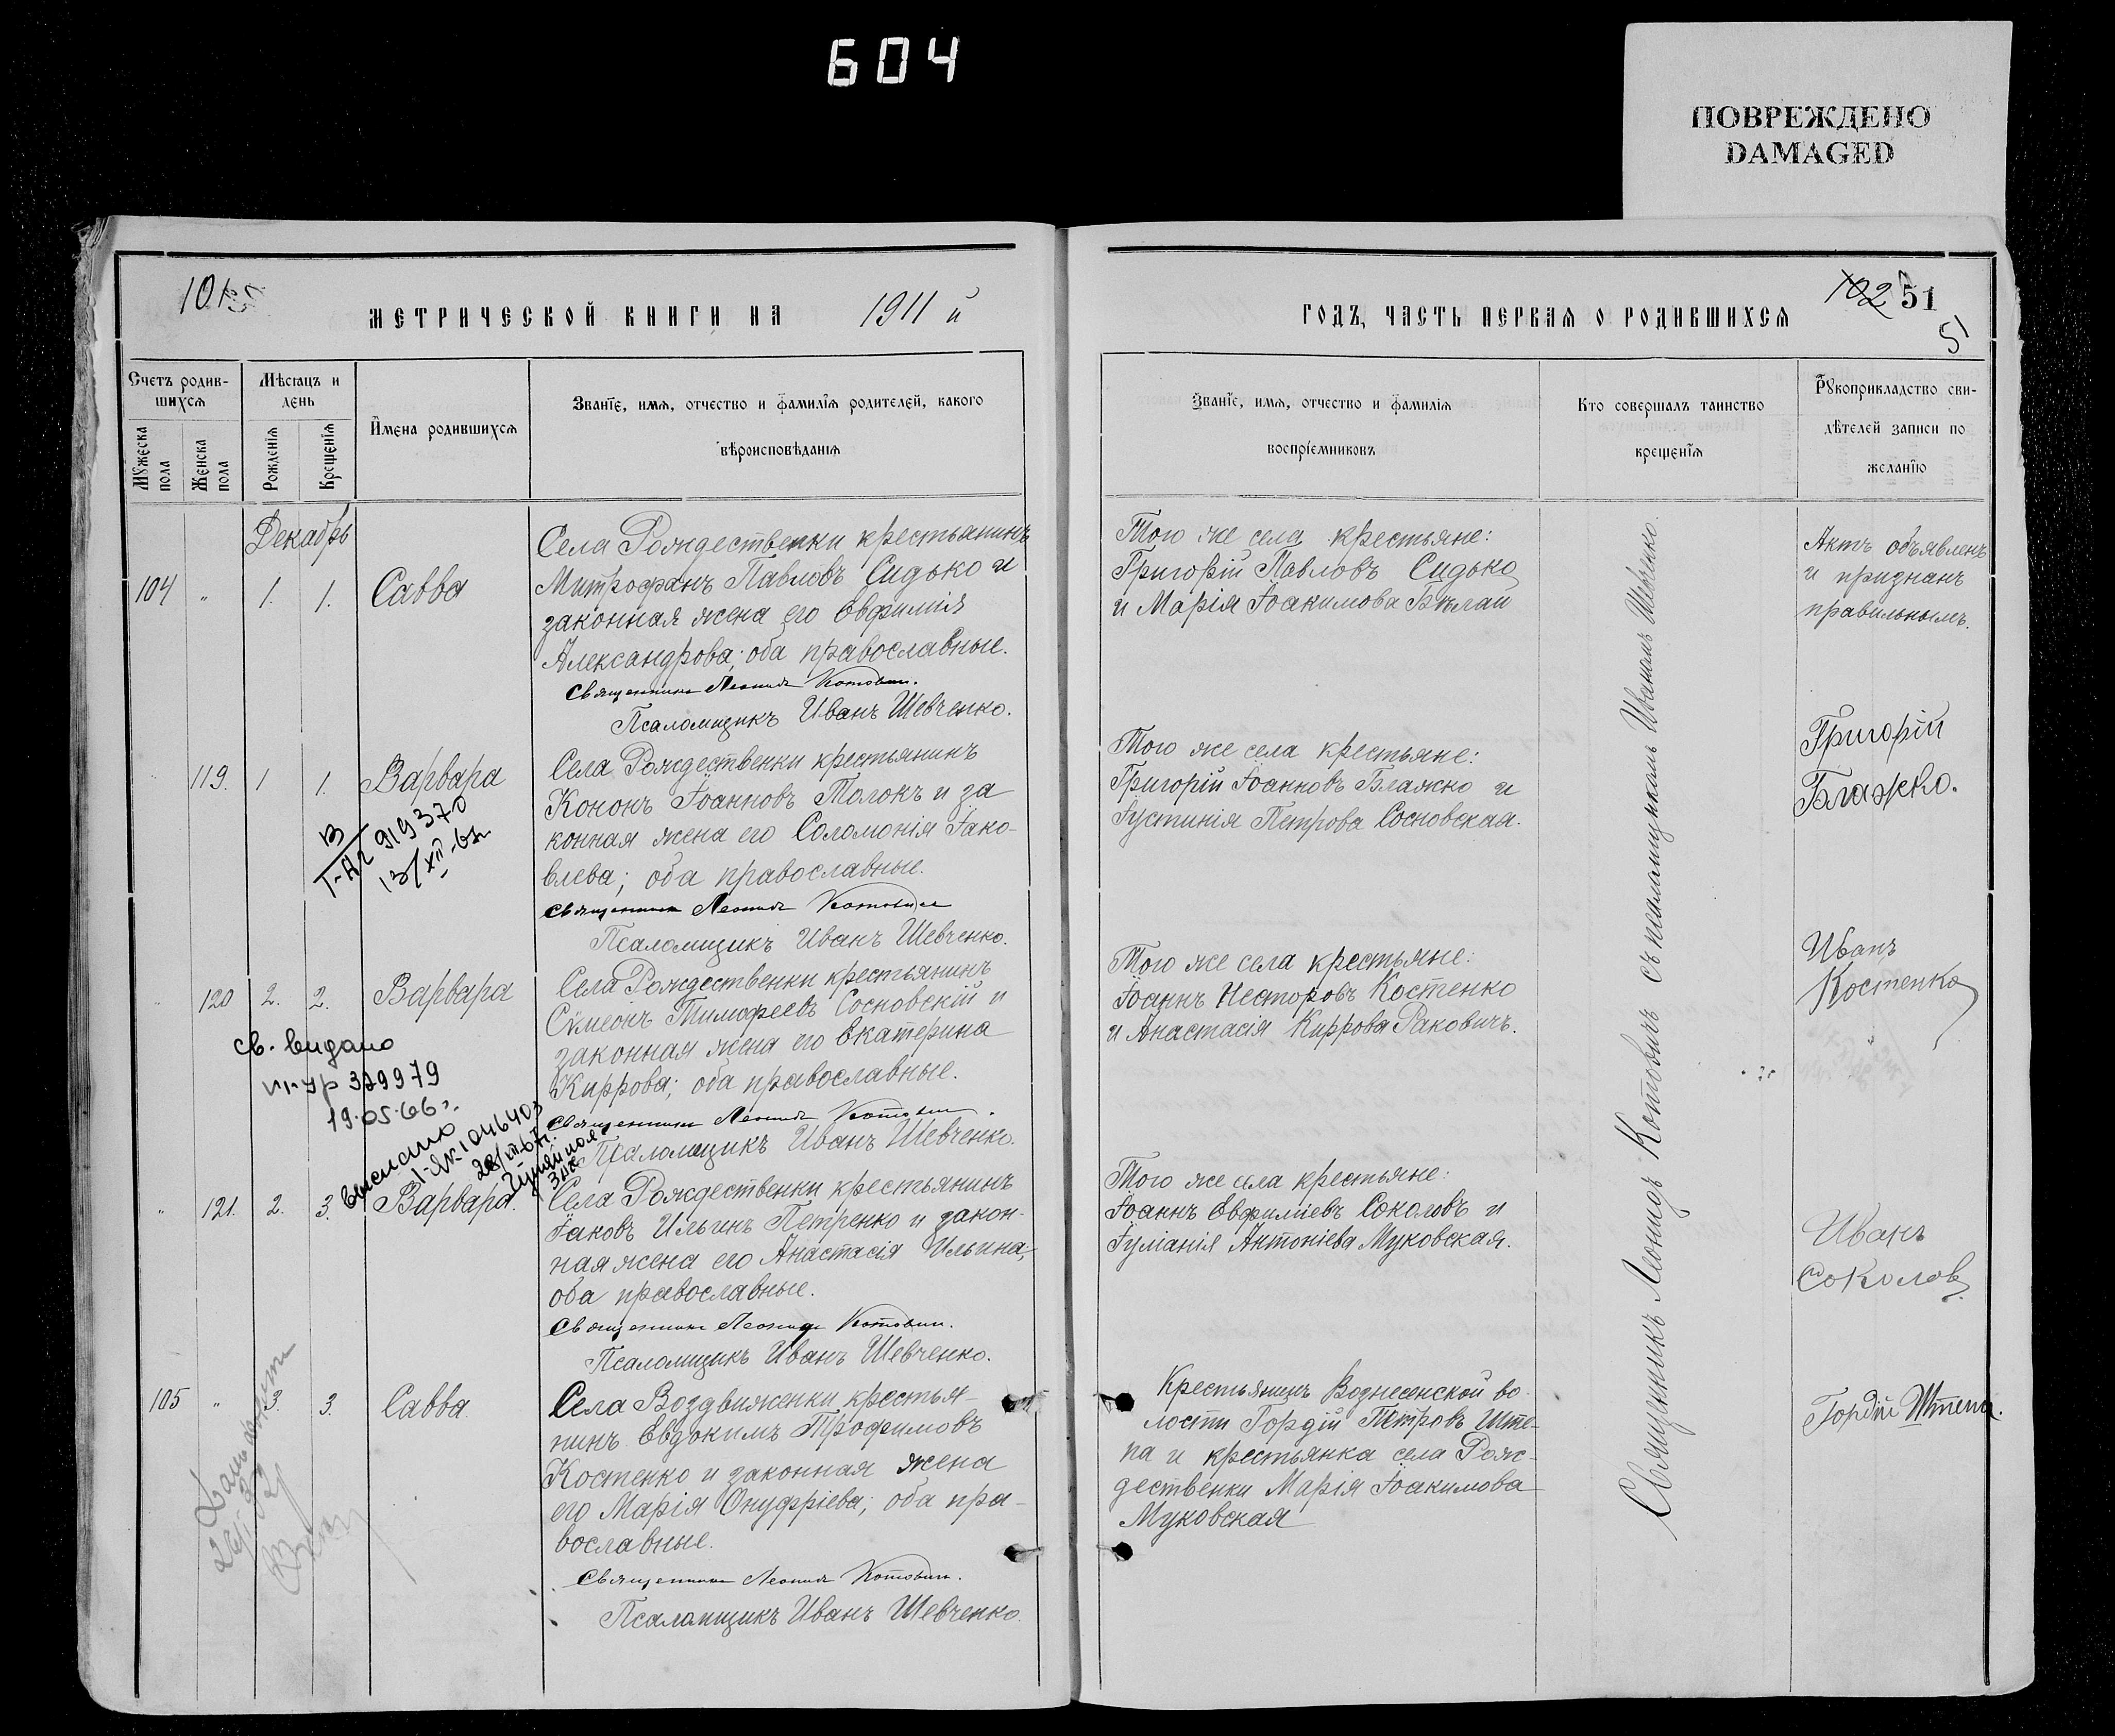 604
ПОВРЕЖДЕНО
DAMAGED
101
МЕТРИЧЕСКОЙ КНИГИ НА 1911 й
Счетъ родив-
шихся
Мѣсяцъ и
день
Имена родившихся
Званїе, имя, отчество и фамилїя родителей, какого
вѣроисповѣданїя
Мужеска
пола
Женска
пола
Рожденїя
Крещенїя
Декабрь
104 " 1. 1. Савва
Села Рождественки крестьянинъ
Митрофанъ Павловъ Сидько и
законная жена его Евфимія
Александрова; оба православные.
Священникъ Леонидъ Котовичъ.
Псаломщикъ Иванъ Шевченко.
119. 1 1. Варвара
Села Рождественки крестьянинъ
Кононъ Іоанновъ Толокъ и за
конная жена его Соломонія Іако-
влева; оба православные.
Священникъ Леонидъ Котовичъ
Псаломщикъ Иванъ Шевченко.
919370
" 120 2. 2. Варвара
Села Рождественки крестьянинъ
Сѵмеонъ Тимофеевъ Сосновскій и
законная жена его Екатерина
Киррова; оба православные.
Священникъ Леонидъ Котовичъ.
Псаломщикъ Иванъ Шевченко.
св. видано
329979
19.05.66г.
1046403
" 121. 2. 3. Варвара.
Села Рождественки крестьянинъ
Іаковъ Ильинъ Петренко и закон-
ная жена его Анастасія Ильина,
оба православные.
Священникъ Леонидъ Котовичъ.
Псаломщикъ Иванъ Шевченко.
105 " 3. 3. Савва
Села Воздвиженки крестья-
нинъ Евдокимъ Трофимовъ
Костенко и законная жена
его Марія Онуфріева; оба пра-
вославные.
Священникъ Леонидъ Котовичъ.
Псаломщикъ Иванъ Шевченко.
102 51
51
ГОДЪ, ЧАСТЬ ПЕРВАЯ О РОДИВШИХСЯ
Званїе, имя, отчество и фамилїя
воспрїемниковъ
Кто совершалъ таинство
крещенїя
Рукоприкладство сви-
дѣтелей записи по
желанїю
Того же села крестьяне:
Григорій Павловъ Сидько
и Марія Іоакимова Бѣлай
Актъ объявленъ
и признанъ
правильнымъ.
Того же села крестьяне:
Григорій Іоанновъ Блажко и
Іустинія Петрова Сосновская.
Григорій
Блажко.
Того же села крестьяне:
Іоаннъ Несторовъ Костенко
и Анастасія Киррова Раковичъ.
Иванъ
Костенко
Того же села крестьяне:
Іоаннъ Евфиміевъ Соколовъ и
Іуліанія Антоніева Муковская.
Иванъ
Соколовъ
Крестьянинъ Вознесенской во-
лости Гордій ПетровъШте-
па и крестьянка села Рож-
дественки Марія Іоакимова
Муковская
Гордій Штепа.
Священникъ Леонидъ Котовичъ съ псаломщикомъ Иваномъ Шевченко